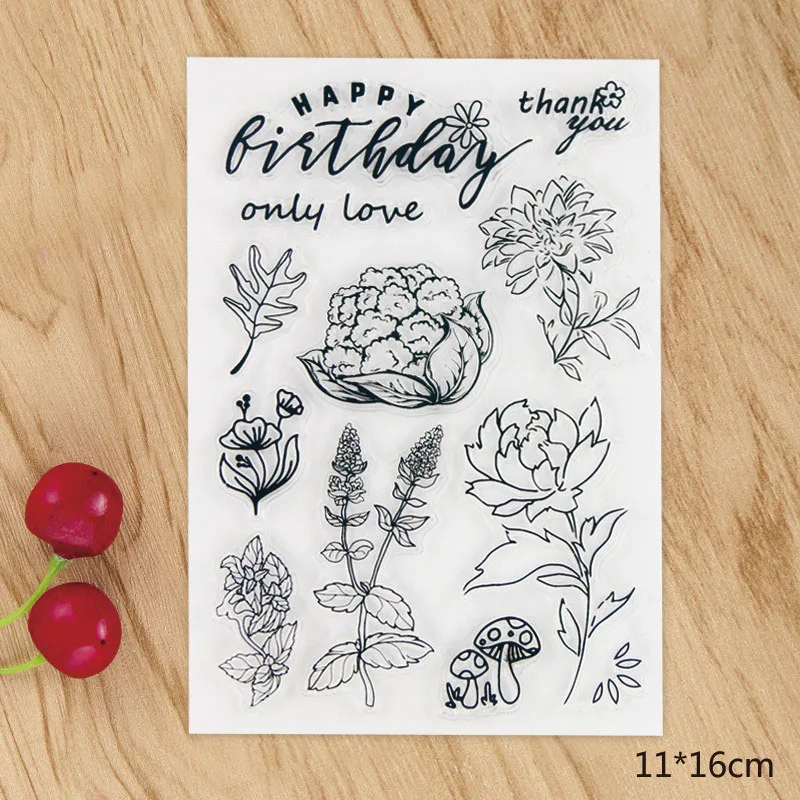 HAPPY
birthday
thank
you
only love
11*16cm